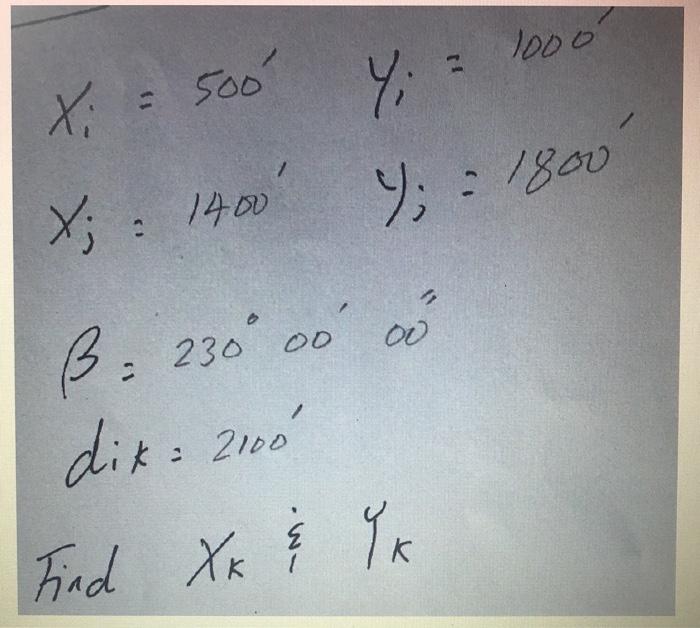 Xi = 500' Yi = 1000'
Xj = 1400' Yj = 1800'
β = 230° 00' 00"
dik = 2100'
Find XK & YK